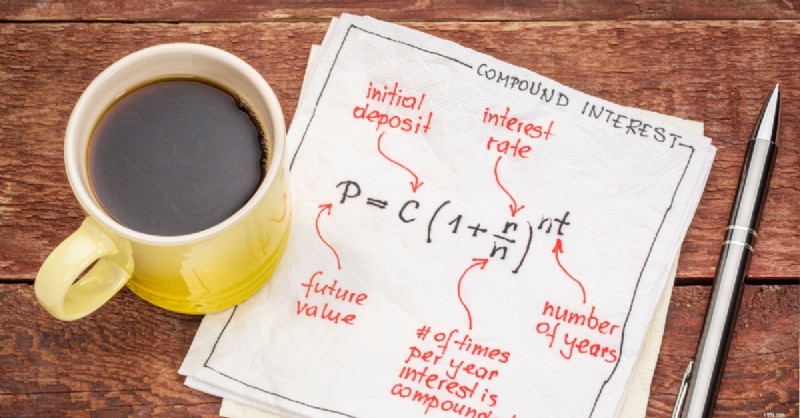 COMPOUND INTEREST
initial
deposit
interest
rate
P = C (1 + r/n)^nt
future
value
# of times
per year
interest is
number
of years